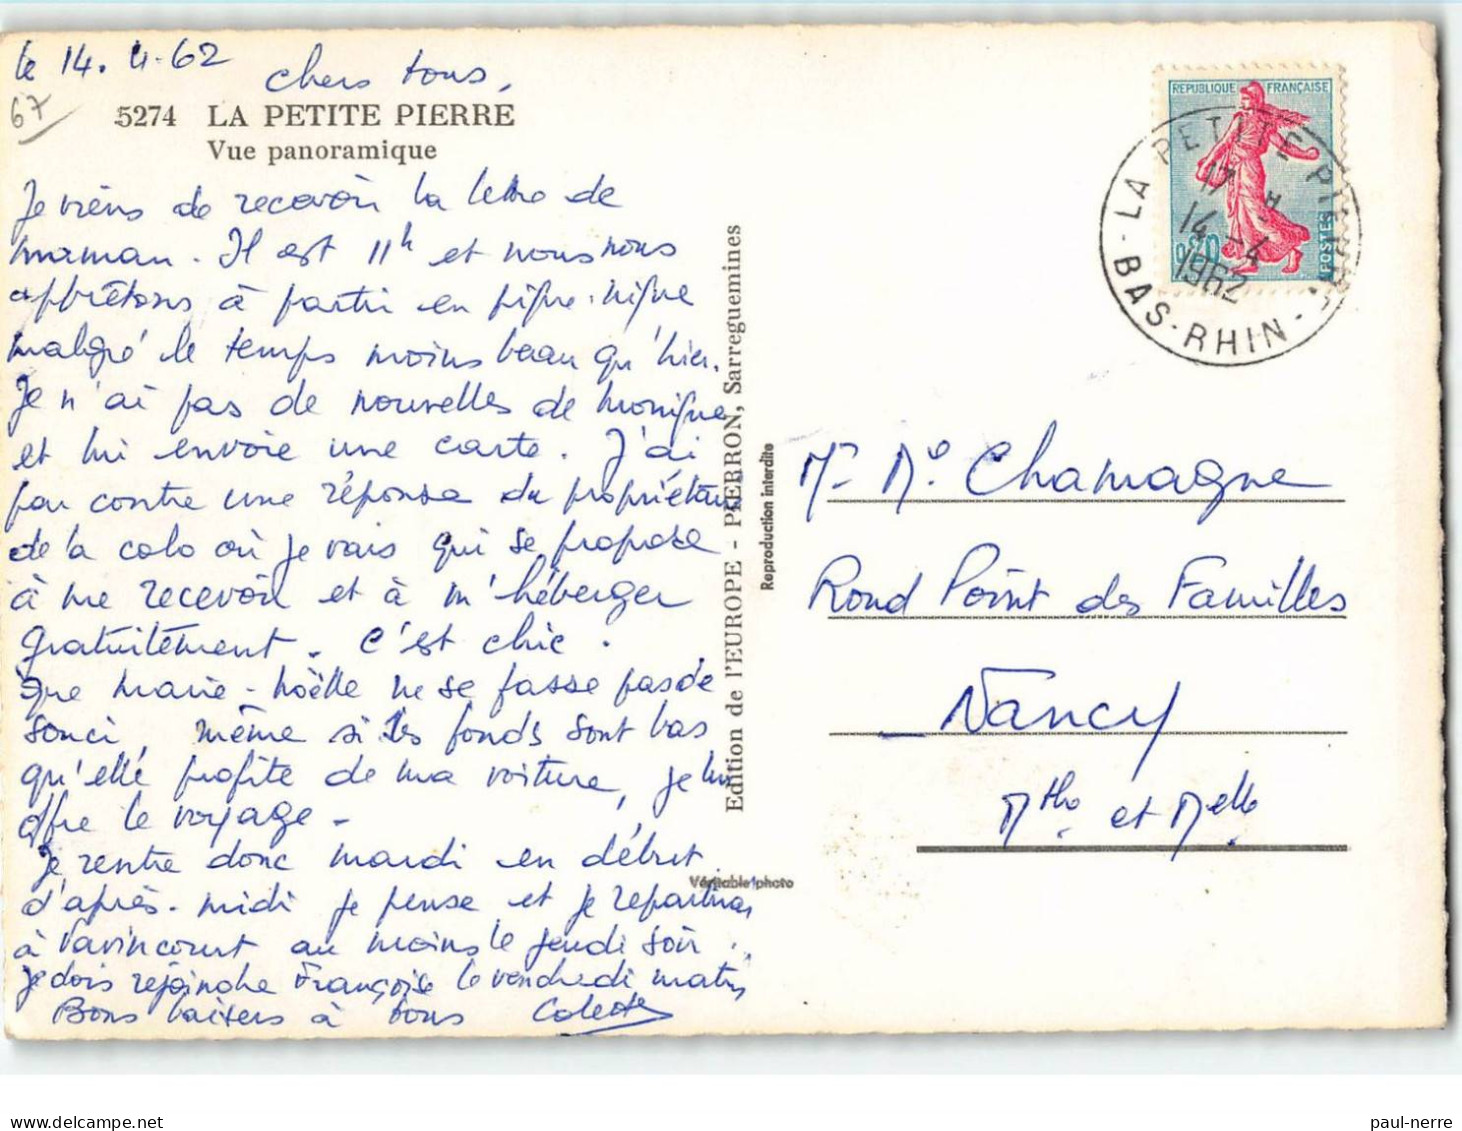 le 14.4.62
chers tous,
67
5274 LA PETITE PIERRE
Vue panoramique
Je viens de recevoir la lettre de
maman. Il est 11h et nous nous
apprêtons à partir en pique-nique
malgré le temps moins beau qu'hier.
Je n'ai pas de nouvelles de Monique
et lui envoie une carte. J'ai
par contre une réponse du propriétaire
de la colo où je vais qui se propose
à me recevoir et à m'héberger
gratuitement. C'est chic.
Que Marie-Noëlle ne se fasse pas de
souci, même si les fonds sont bas
qu'elle profite de ma voiture, je lui
offre le voyage -
Je rentre donc mardi en début
d'après-midi je pense et je repartirai
à Vavincourt au moins le jeudi soir.
Je dois rejoindre Françoise le vendredi matin
Bons baisers à tous Colette
Edition de l'EUROPE - PIERRON, Sarreguemines
Reproduction interdite
Véritable photo
REPUBLIQUE FRANÇAISE
0,20
POSTES
LA PETITE PIERRE
17 H
14 - 4
1962
- BAS-RHIN -
Mr Me Chamagne
Rond Point des Familles
Nancy
Mthe et Melle
paul-nerre